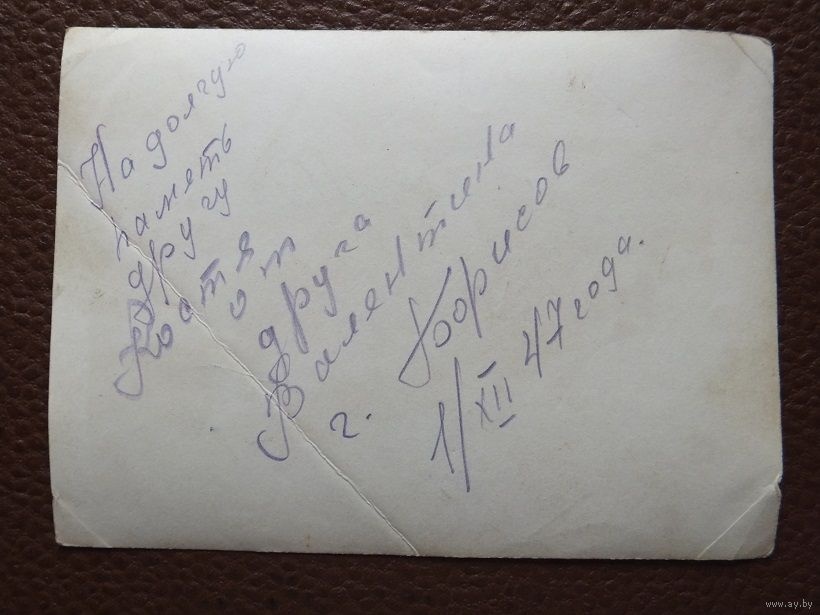 На долгую
память
другу
Костя
от
друга
Валентина
г. Борисов
1/XII 47 года.
www.ay.by